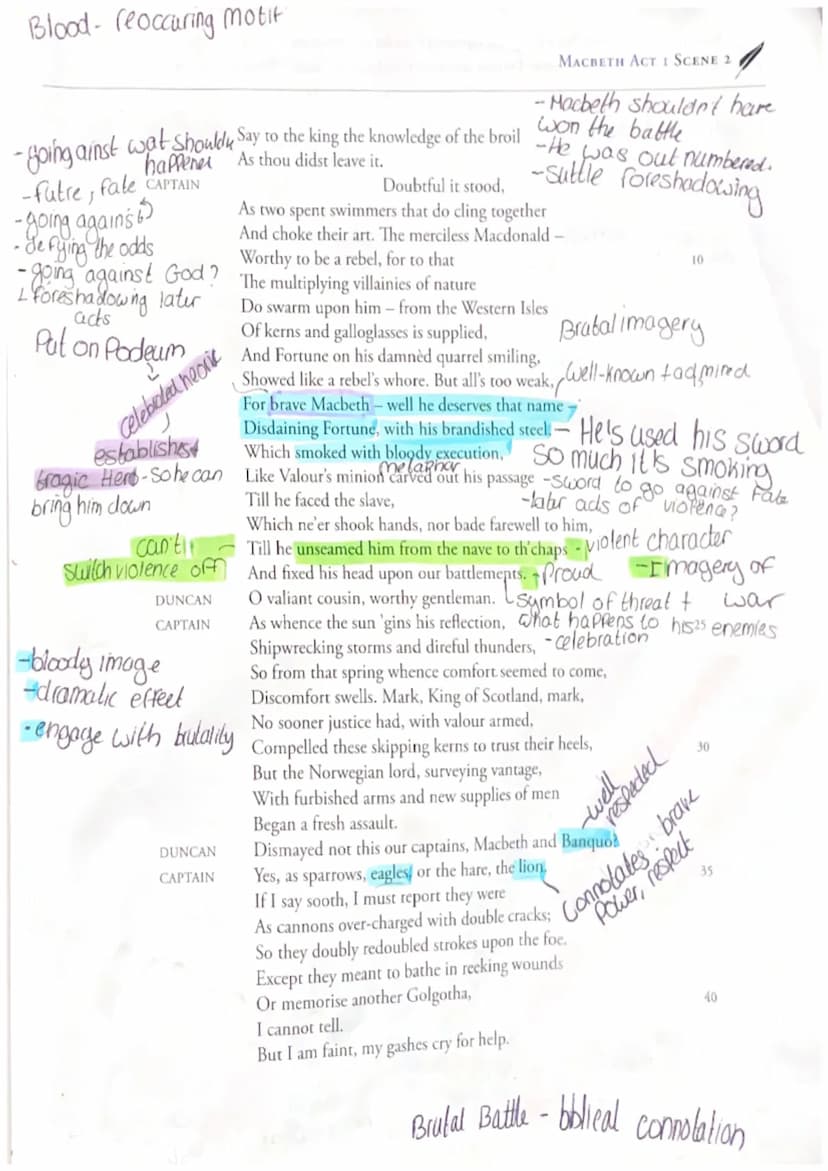 Blood - reoccuring motif
MACBETH ACT 1 SCENE 2
- Macbeth shouldn't have
won the battle
- He was out numbered.
- Suttle foreshadowing
- going ainst wat should
happener
- futre, fate
- going against
- defying the odds
- going against God?
foreshadowing later
acts
Put on Podeum
celebrated heroic
established
tragic Hero - so he can
bring him down
can't
switch violence off
- bloody image
- dramatic effect
- engage with brutality
Say to the king the knowledge of the broil
As thou didst leave it.
CAPTAIN Doubtful it stood,
As two spent swimmers that do cling together
And choke their art. The merciless Macdonald –
Worthy to be a rebel, for to that 10
The multiplying villainies of nature
Do swarm upon him – from the Western Isles
Of kerns and galloglasses is supplied,
And Fortune on his damnèd quarrel smiling,
Showed like a rebel's whore. But all's too weak,
For brave Macbeth – well he deserves that name –
Disdaining Fortune, with his brandished steel,
Which smoked with bloody execution,
Like Valour's minion carved out his passage
Till he faced the slave,
Which ne'er shook hands, nor bade farewell to him,
Till he unseamed him from the nave to th'chaps
And fixed his head upon our battlements.
DUNCAN O valiant cousin, worthy gentleman.
CAPTAIN As whence the sun 'gins his reflection, 25
Shipwrecking storms and direful thunders,
So from that spring whence comfort seemed to come,
Discomfort swells. Mark, King of Scotland, mark,
No sooner justice had, with valour armed,
Compelled these skipping kerns to trust their heels, 30
But the Norwegian lord, surveying vantage,
With furbished arms and new supplies of men
Began a fresh assault.
DUNCAN Dismayed not this our captains, Macbeth and Banquo?
CAPTAIN Yes, as sparrows, eagles, or the hare, the lion. 35
If I say sooth, I must report they were
As cannons over-charged with double cracks;
So they doubly redoubled strokes upon the foe.
Except they meant to bathe in reeking wounds
Or memorise another Golgotha, 40
I cannot tell.
But I am faint, my gashes cry for help.
Brutal imagery
well-known + admired
- He's used his sword
so much it's smoking
metaphor
- sword to go against fate
- later acts of violence?
- violent character
- Proud
- Imagery of
war
symbol of threat +
what happens to his enemies
- celebration
- well
respected
connotates: brave
power, respect
Brutal Battle - bblical connotation